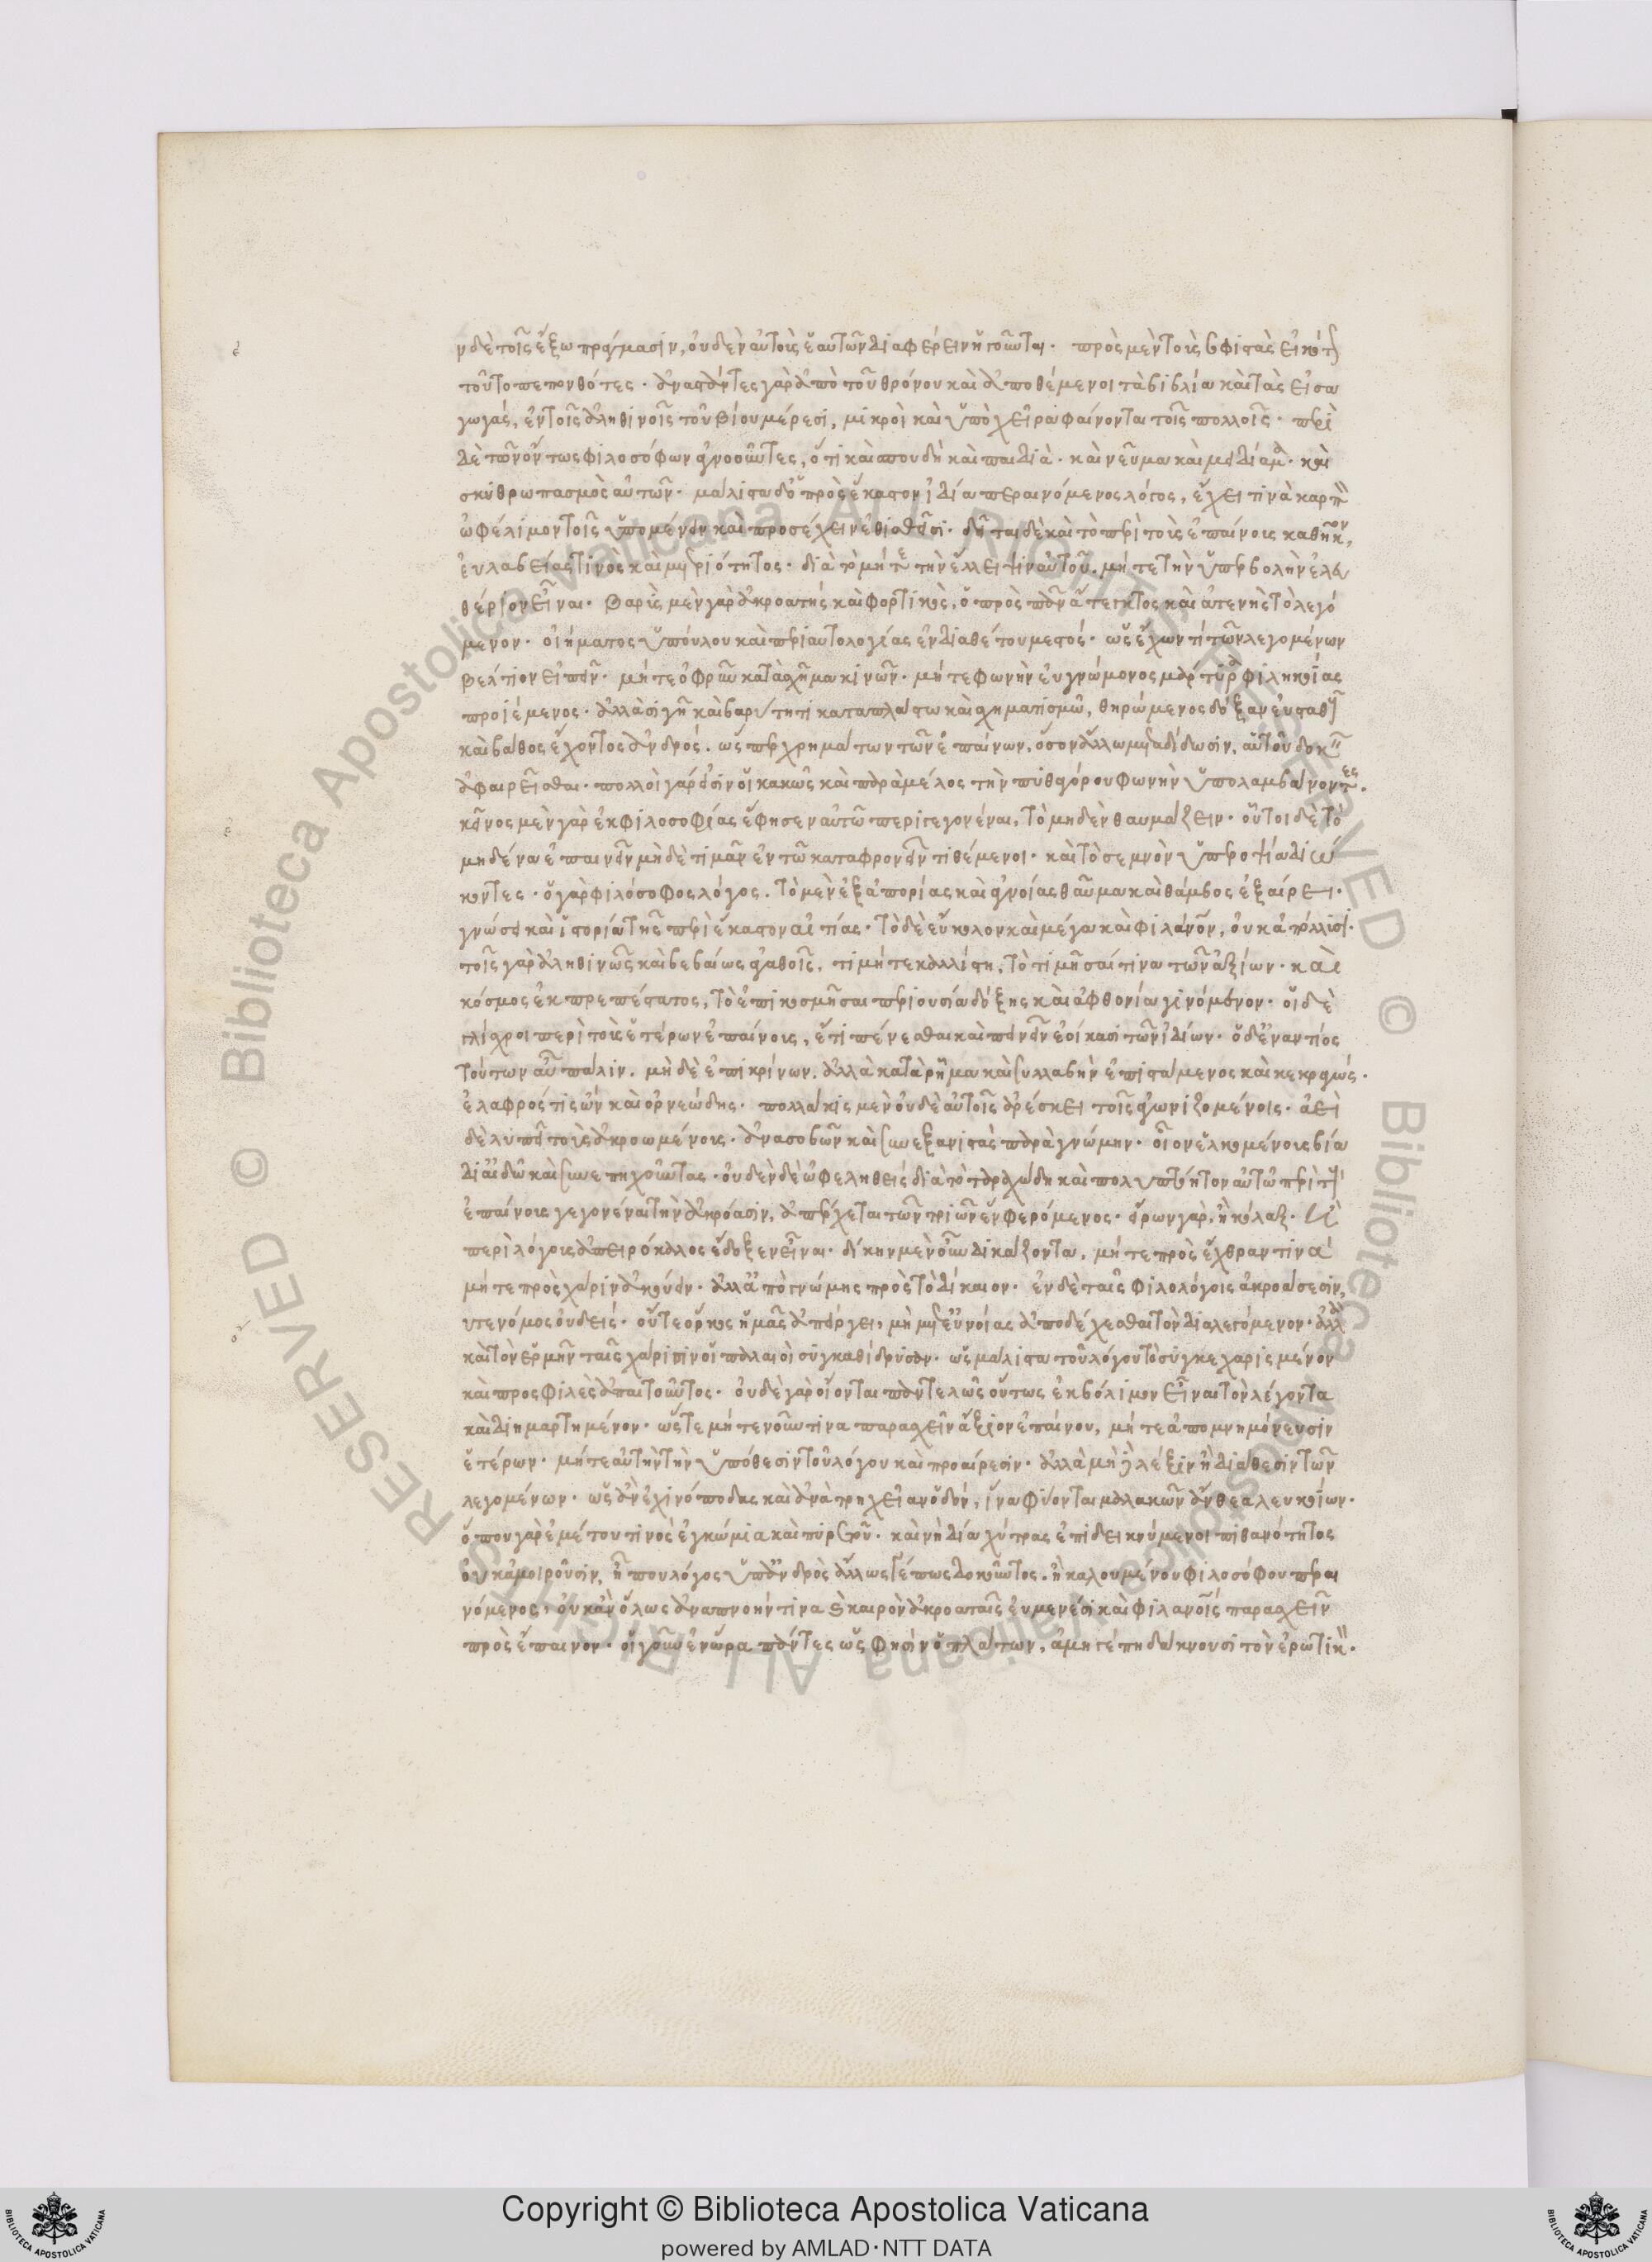 ν δὲ τοῖς ἔξω πράγμασιν, οὐδὲν αὐτοὺς ἑαυτῶν διαφέρειν ἡγοῦνται· πρὸς μὲν τοὺς σοφιστὰς εἰκότ
τοῦτο πεπονθότες· ἀναστάντες γὰρ ἀπὸ τοῦ θρόνου καὶ ἀποθέμενοι τὰ βιβλία καὶ τὰς εἰσα
γωγάς, ἐν τοῖς ἀληθινοῖς τοῦ βίου μέρεσι, μικροὶ καὶ ὑπὸ χεῖρα φαίνονται τοῖς πολλοῖς· περὶ
δὲ τῶν ὄντως φιλοσόφων ἀγνοοῦντες, ὅτι καὶ σπουδὴ καὶ παιδιὰ· καὶ νεῦμα καὶ μειδίαμα· καὶ
σκυθρωπασμὸς αὐτῶν· μάλιστα δ' ὁ πρὸς ἕκαστον ἰδία περαινόμενος λόγος, ἔχει τινὰ καρπὸν
ὠφέλιμον τοῖς ὑπομένειν καὶ προσέχειν ἐθισθεῖσι· δεῖται δὲ καὶ τὸ περὶ τοὺς ἐπαίνους καθῆκον,
εὐλαβείας τινὸς καὶ μετριότητος· διὰ τὸ μήτε τὴν ἔλλειψιν αὐτοῦ, μήτε τὴν ὑπερβολὴν ἐλευ
θέριον εἶναι· βαρὺς μὲν γὰρ ἀκροατὴς καὶ φορτικὸς, ὁ πρὸς πᾶν ἄτεγκτος καὶ ἀτενὴς τὸ λεγό
μενον· οἰήματος ὑπούλου καὶ περιαυτολογίας ἐνδιαθέτου μεστός· ὡς ἔχων τί τῶν λεγομένων
βέλτιον εἰπεῖν· μήτε ὀφρῦν κατὰ σχῆμα κινῶν· μήτε φωνὴν εὐγνώμονος μάρτυρα φιληκοΐας
προϊέμενος· ἀλλὰ σιγῇ καὶ βαρύτητι καταπλάστω καὶ σχηματισμῶ, θηρώμενος δόξαν εὐσταθοῦς
καὶ βάθος ἔχοντος ἀνδρός· ὥσπερ χρημάτων τῶν ἐπαίνων, ὅσον ἄλλω μεταδίδωσιν, αὑτοῦ δοκῶν
ἀφαιρεῖσθαι· πολλοὶ γάρ εἰσιν οἳ κακῶς καὶ παρὰ μέλος τὴν πυθαγόρου φωνὴν ὑπολαμβάνοντες·
κεῖνος μὲν γὰρ ἐκ φιλοσοφίας ἔφησεν αὐτῶ περιγεγονέναι, τὸ μηδὲν θαυμάζειν· οὗτοι δὲ τὸ
μηδένα ἐπαινεῖν μὴ δὲ τιμᾶν ἐν τῶ καταφρονεῖν τιθέμενοι· καὶ τὸ σεμνὸν ὑπεροψία διώ
κοντες· ὁ γὰρ φιλόσοφος λόγος, τὸ μὲν ἐξ ἀπορίας καὶ ἀγνοίας θαῦμα καὶ θάμβος ἐξαίρει·
γνώσει καὶ ἱστορία τῆς περὶ ἕκαστον αἰτίας· τὸ δὲ εὔκολον καὶ μέγα καὶ φιλάνθρωπον, οὐκ ἀπόλλυσι·
τοῖς γὰρ ἀληθινῶς καὶ βεβαίως ἀγαθοῖς, τιμή τε καλλίστη, τὸ τιμῆσαί τινα τῶν ἀξίων· καὶ
κόσμος ἐκπρεπέστατος, τὸ ἐπικοσμῆσαι περιουσία δόξης καὶ ἀφθονία γινόμενον· οἱ δὲ
γλίσχροι περὶ τοὺς ἑτέρων ἐπαίνους, ἔτι πένεσθαι καὶ πεινεῖν ἐοίκασι τῶν ἰδίων· ὁ δ' ἐναντίος
τούτων αὖ πάλιν, μὴ δὲ ἐπικρίνων, ἀλλὰ κατὰ ῥῆμα καὶ συλλαβὴν ἐπιστάμενος καὶ κεκραγώς·
ἐλαφρός τις ὢν καὶ ὀρνεώδης· πολλάκις μὲν οὐδὲ αὐτοῖς ἀρέσκει τοῖς ἀγωνιζομένοις· ἀεὶ
δὲ λυπεῖ τοὺς ἀκροωμένους· ἀνασοβῶν καὶ συνεξανιστὰς παρὰ γνώμην· οἷον ἑλκομένους βία
δι' αἰδῶ καὶ συνεπηχοῦντας· οὐδὲν δὲ ὠφεληθεὶς διὰ τὸ ταραχώδη καὶ πολυπτόητον αὐτῶ περὶ τοὺς
ἐπαίνους γεγονέναι τὴν ἀκρόασιν, ἀπέρχεται τῶν τριῶν ἓν φερόμενος· εἴρων γὰρ, ἢ κόλαξ· ἢ
περὶ λόγους ἀπειρόκαλος ἔδοξεν εἶναι· δίκην μὲν οὖν δικάζοντα, μήτε πρὸς ἔχθραν τινὰ
μήτε πρὸς χάριν ἀκούειν· ἀλλ' ἀπὸ γνώμης πρὸς τὸ δίκαιον· ἐν δὲ ταῖς φιλολόγοις ἀκροάσεσιν,
οὔτε νόμος οὐδεὶς· οὔτε ὅρκος ἡμᾶς ἀπείργει, μὴ μετ' εὐνοίας ἀποδέχεσθαι τὸν διαλεγόμενον· ἀλλὰ
καὶ τὸν ἑρμῆν ταῖς χάρισιν οἱ παλαιοὶ συγκαθίδρυσαν· ὡς μάλιστα τοῦ λόγου τὸ συγκεχαρισμένον
καὶ προσφιλὲς ἀπαιτοῦντος· οὐδὲ γὰρ οἴονται παντελῶς οὕτως ἐκβόλιμον εἶναι τὸν λέγοντα
καὶ διημαρτημένον· ὥστε μήτε νοῦν τινα παρασχεῖν ἄξιον ἐπαίνου, μήτε ἀπομνημόνευσιν
ἑτέρων· μήτε αὐτὴν τὴν ὑπόθεσιν τοῦ λόγου καὶ προαίρεσιν· ἀλλὰ μὴ δὲ λέξιν ἢ διάθεσιν τῶν
λεγομένων· ὡς ἀν' ἐχινόποδας καὶ ἀνὰ τρηχεῖαν ὄνωνιν, ἵνα φύονται μαλακῶν ἄνθεα λευκοΐων·
ὅπου γὰρ ἐμέτου τινὸς ἐγκώμια καὶ πυρετοῦ· καὶ νὴ δία χύτρας ἐπιδεικνύμενοι πιθανότητος
οὐκ ἀμοιροῦσιν, ἦπου λόγος ὑπ' ἀνδρὸς ἄλλως γέ πως δοκοῦντος, ἢ καλουμένου φιλοσόφου περαι
νόμενος, οὐκ ἂν ὅλως ἀναπνοήν τινα καὶ καιρὸν ἀκροαταῖς εὐμενέσι καὶ φιλανθρώποις παρασχεῖν
πρὸς ἔπαινον· οἱ γοῦν ἐν ὥρα πάντες ὥς φησιν ὁ πλάτων, ἁμηγέπη δάκνουσι τὸν ἐρωτικὸν·